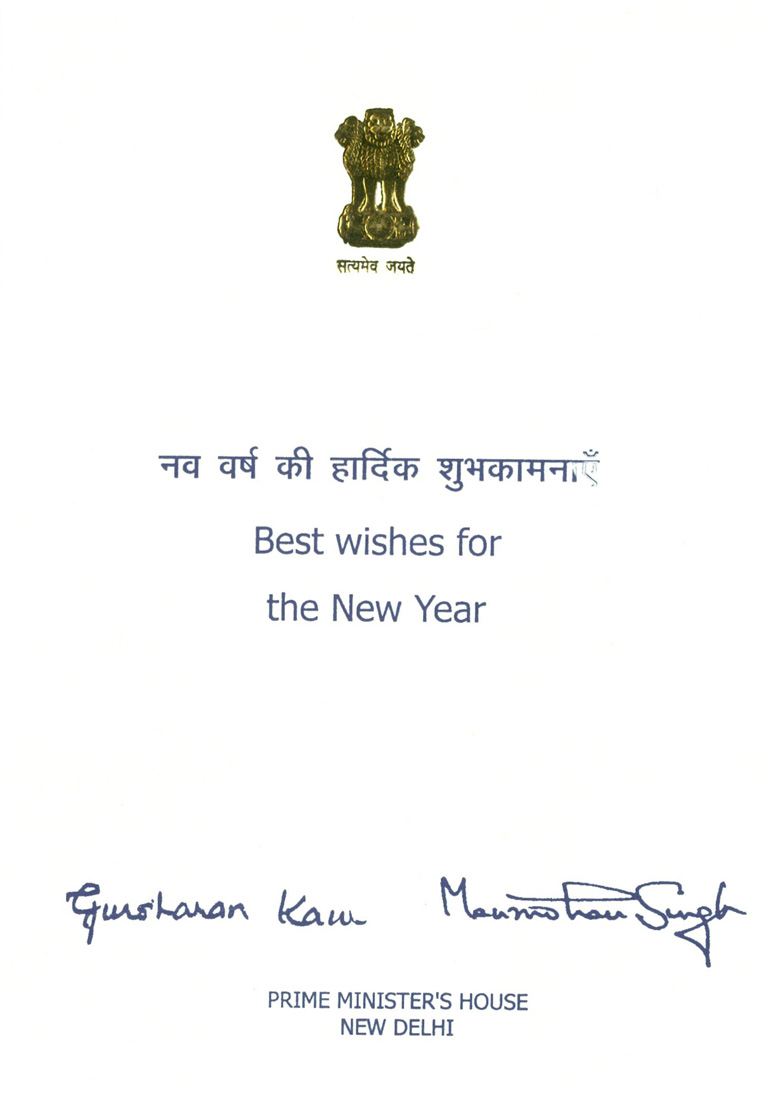 सत्यमेव जयते
नव वर्ष की हार्दिक शुभकामनाएँ
Best wishes for
the New Year
Gursharan Kaur Manmohan Singh
PRIME MINISTER'S HOUSE
NEW DELHI